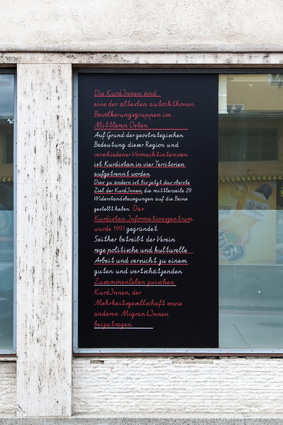 Die KurdInnen sind
eine der ältesten autochthonen
Bevölkerungsgruppen im
Mittleren Osten.
Auf Grund der geostrategischen
Bedeutung dieser Region und
verschiedener Vormachtinteressen
ist Kurdistan in vier Territorien
aufgetrennt worden.
Dies zu ändern ist bis jetzt das oberste
Ziel der KurdInnen, die mittlerweile 29
Widerstandsbewegungen auf die Beine
gestellt haben. Das
Kurdistan Informationszentrum
wurde 1991 gegründet.
Seither betreibt der Verein
rege politische und kulturelle
Arbeit und versucht zu einem
guten und wertschätzenden
Zusammenleben zwischen
KurdInnen, der
Mehrheitsgesellschaft sowie
anderen MigrantInnen
beizutragen.